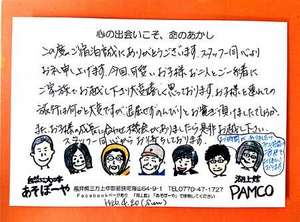 心の出会いこそ、命のあかし
この度のご宿泊誠にありがとうございます。スタッフ一同心より
お礼申し上げます。今回、可愛いお子様お二人とご一緒に
ご家族でお越し下さり大変嬉しく思っております。お子様を連れての
旅行は何かと大変ですが
のんびりとお寛ぎ頂けましたでしょうか。
お子様の成長に合わせ機会がありましたら是非お越し下さい。
スタッフ一同心よりお待ちしております。
自然に大の字
あそぼーや
湖上館
PAMCO
福井県三方上中郡若狭町海山64-9-1 TEL0770-47-1727
Facebookページあり